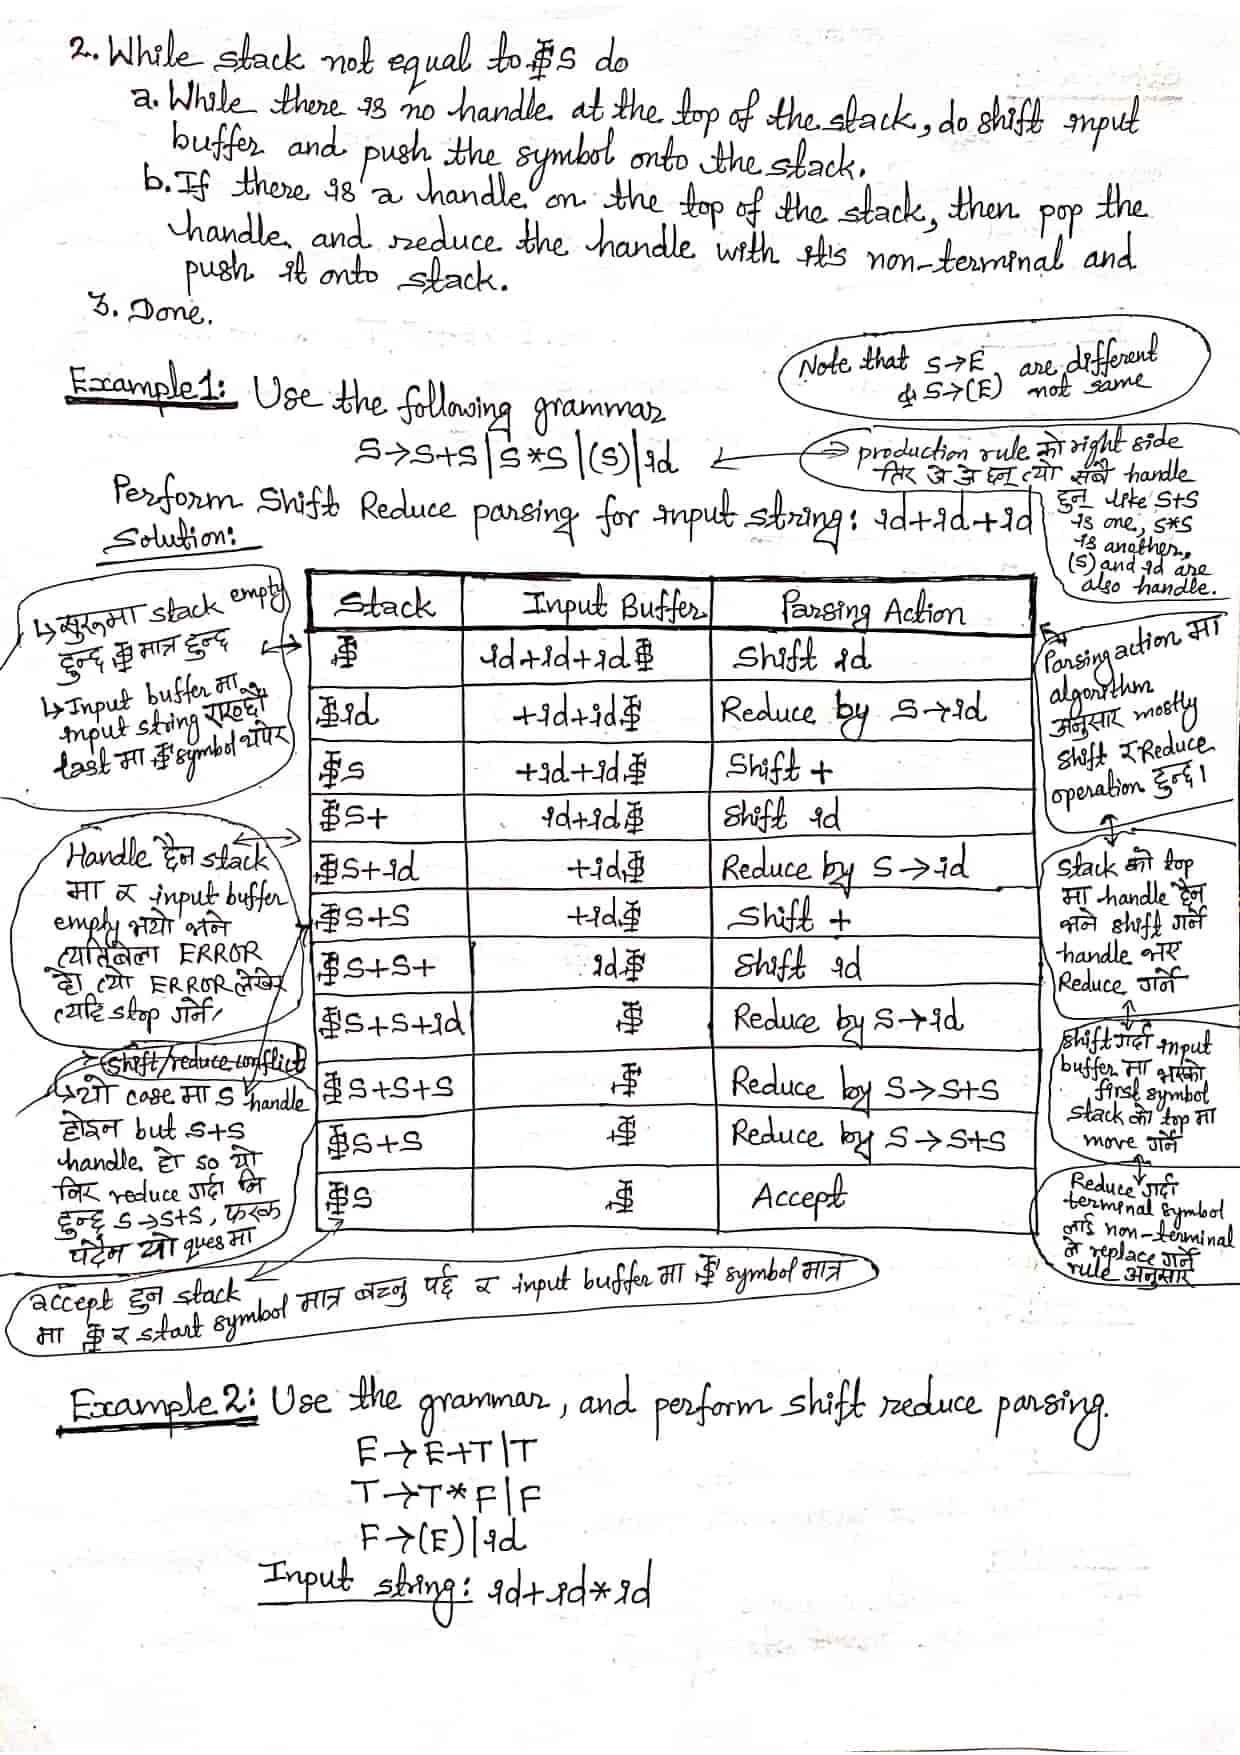 2. While stack not equal to $S do
a. While there is no handle at the top of the stack, do shift input
buffer and push the symbol onto the stack.
b. If there is a handle on the top of the stack, then pop the
handle and reduce the handle with it's non-terminal and
push it onto stack.
3. Done.
Note that S→E are different
& S→(E) not same
Example 1: Use the following grammar
S→S+S|S*S|(S)|id
production rule को right side
तिर जे जे छन् त्यो सबै handle
हुन् like S+S
is one, S*S
is another,
(S) and id are
also handle.
Perform Shift Reduce parsing for input string: id+id+id
Solution:
Stack Input Buffer Parsing Action
$ id+id+id$ Shift id
$id +id+id$ Reduce by S→id
$S +id+id$ Shift +
$S+ id+id$ Shift id
$S+id +id$ Reduce by S→id
$S+S +id$ Shift +
$S+S+ id$ Shift id
$S+S+id $ Reduce by S→id
$S+S+S $ Reduce by S→S+S
$S+S $ Reduce by S→S+S
$S $ Accept
↳ सुरुमा stack empty
हुन्छ $ मात्र हुन्छ
↳ Input buffer मा
input string राख्छौ
last मा $ symbol थपेर
Handle छैन stack
मा र input buffer
empty भयो भने
त्यतिबेला ERROR
हो त्यो ERROR लेखेर
त्यहि stop गर्ने।
shift/reduce conflict
↳ यो case मा S handle
होइन but S+S
handle हो so यो
निर reduce गर्दा नि
हुन्छ S→S+S, फरक
पर्दैन यो ques मा
Parsing action मा
algorithm
अनुसार mostly
Shift र Reduce
operation हुन्छ।
Stack को top
मा handle छैन
भने shift गर्ने
handle भए
Reduce गर्ने
Shift गर्दा input
buffer मा भएको
first symbol
stack को top मा
move गर्ने
Reduce गर्दा
terminal symbol
लाई non-terminal
ले replace गर्ने
rule अनुसार
accept हुन stack
मा $ र start symbol मात्र बच्नु पर्छ र input buffer मा $ symbol मात्र
Example 2: Use the grammar, and perform shift reduce parsing.
E→E+T|T
T→T*F|F
F→(E)|id
Input string: id+id*id